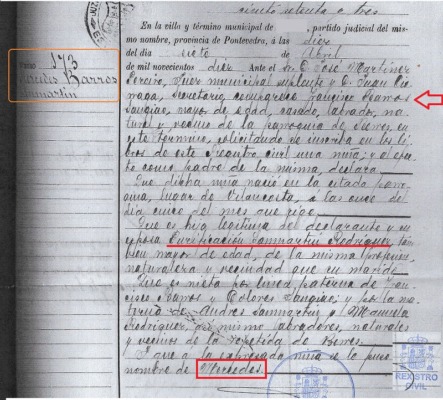 ciento setenta y tres
Núm. 173
Mercedes Barros
Sanmartin
En la villa y término municipal de , partido judicial del mis-
mo nombre, provincia de Pontevedra, á las diez
del día siete de Abril
de mil novecientos diez Ante el Sr. D. José Martínez
Pereiro, Juez municipal suplente y D. Juan
Secretario, compareció Francisco Barros
Sangiao, mayor de edad, casado, labrador, na-
tural y vecino de la parroquia de Berres en
este término, solicitando se inscriba en los li-
bros de este Registro civil una niña; y al efec-
to como padre de la misma, declara
Que dicha niña nació en la citada parro-
quia, lugar de Vilancosta, a las once del
día cinco del mes que rige.
Que es hija legítima del declarante y su
esposa Purificación Sanmartin Rodriguez, tam-
bien mayor de edad, de la misma profesion,
naturaleza y vecindad que su marido.
Que es nieta por linea paterna de Fran-
cisco Barros y Dolores Sangiao; y por la ma-
terna de Andres Sanmartin y Manuela
Rodriguez, labradores, naturales
y vecinos de la repetida de Berres.
Y que a la expresada niña se le puso
nombre de Mercedes.
REXISTRO
CIVIL